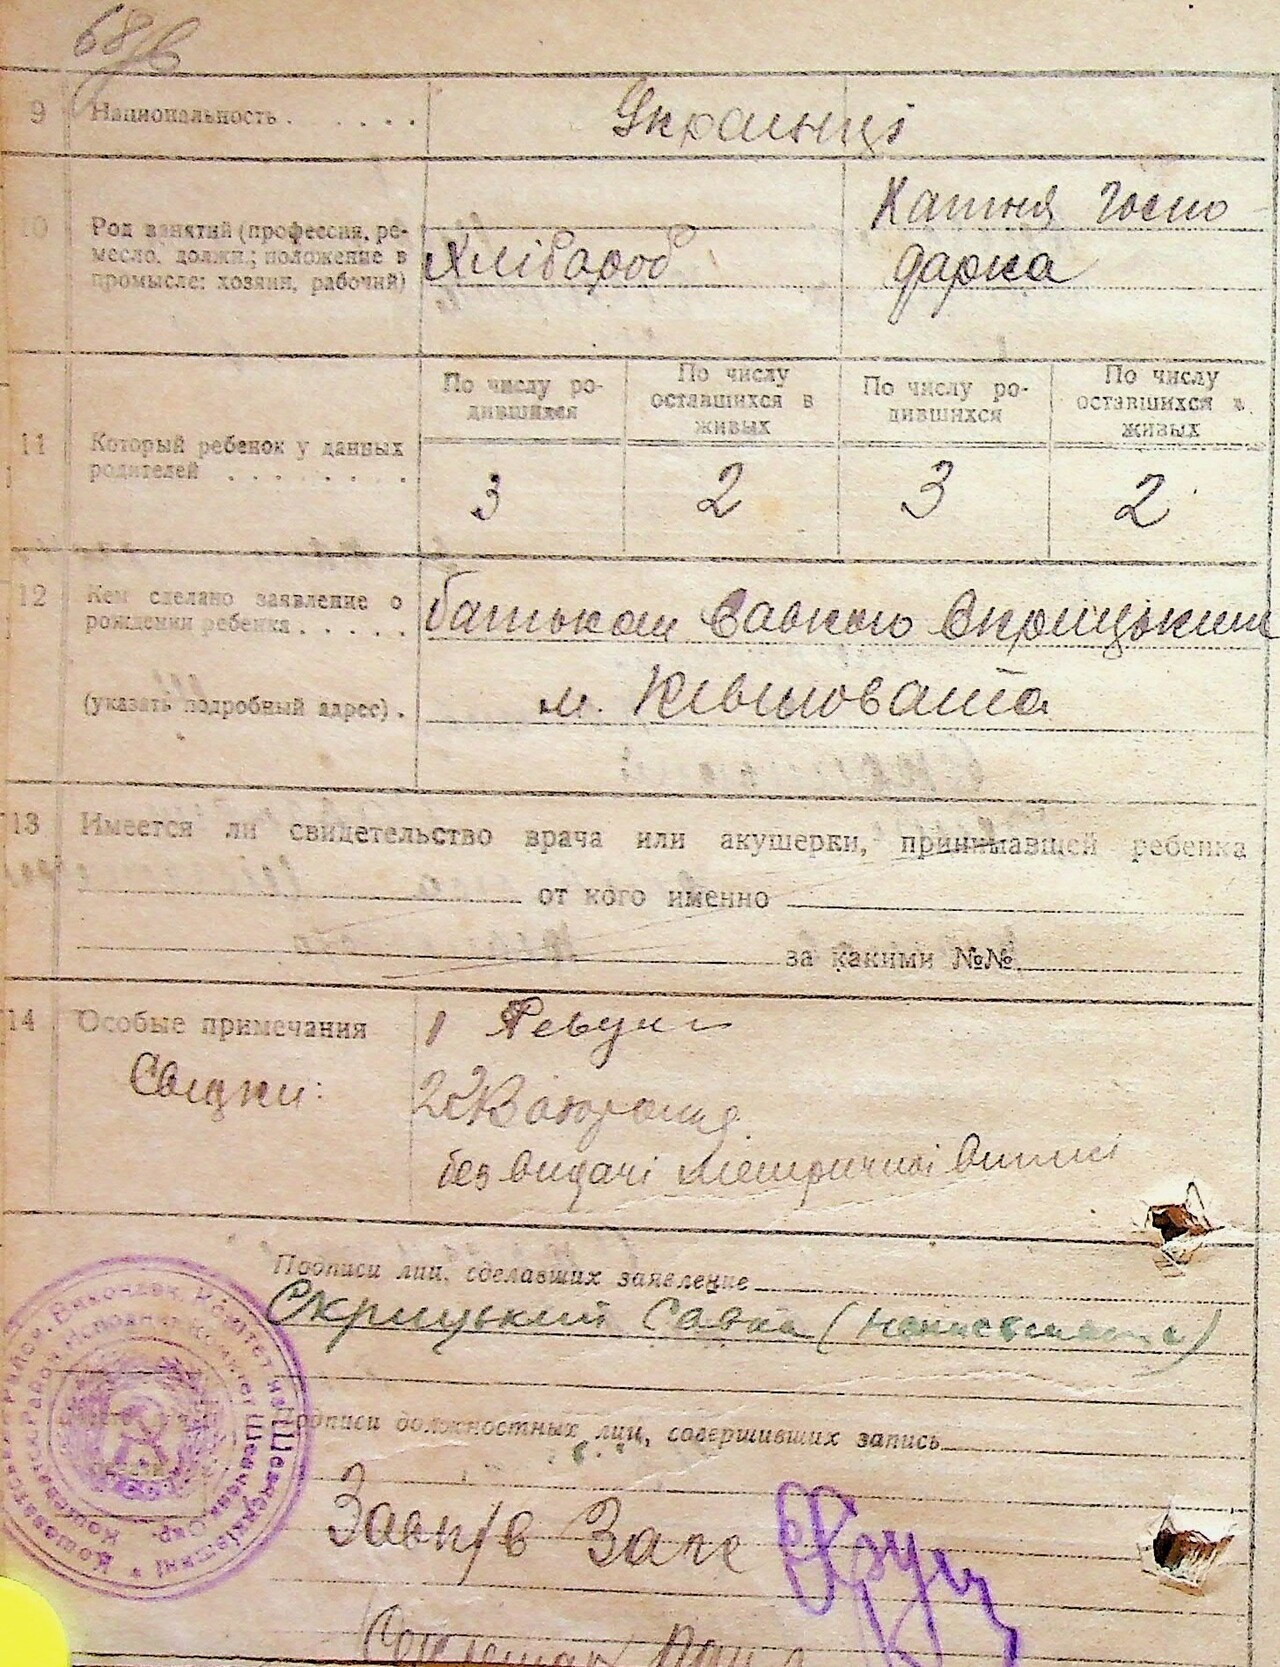 68
9 Национальность . . . . .
Українці
10 Род занятий (профессия, ре-
месло, должн.; положение в
промысле: хозяин, рабочий)
Хлібороб
Хатня Госпо
дарка
11 Который ребенок у данных
родителей . . . . . . .
По числу ро-
дившихся
По числу
оставшихся в
живых
По числу ро-
дившихся
По числу
оставшихся в
живых
3 2 3 2
12 Кем сделано заявление о
рождении ребенка . . . . .
(указать подробный адрес) .
батьком Савкою Скрицьким
м. Ківшовата
13 Имеется ли свидетельство врача или акушерки, принимавшей ребенка
от кого именно
за какими №№
14 Особые примечания
Свідки:
1 Ревун
2
без видачі метричної виписі
Подписи лиц, сделавших заявление
Скрицький Савка (неписьменний)
Подписи должностных лиц, совершивших запись